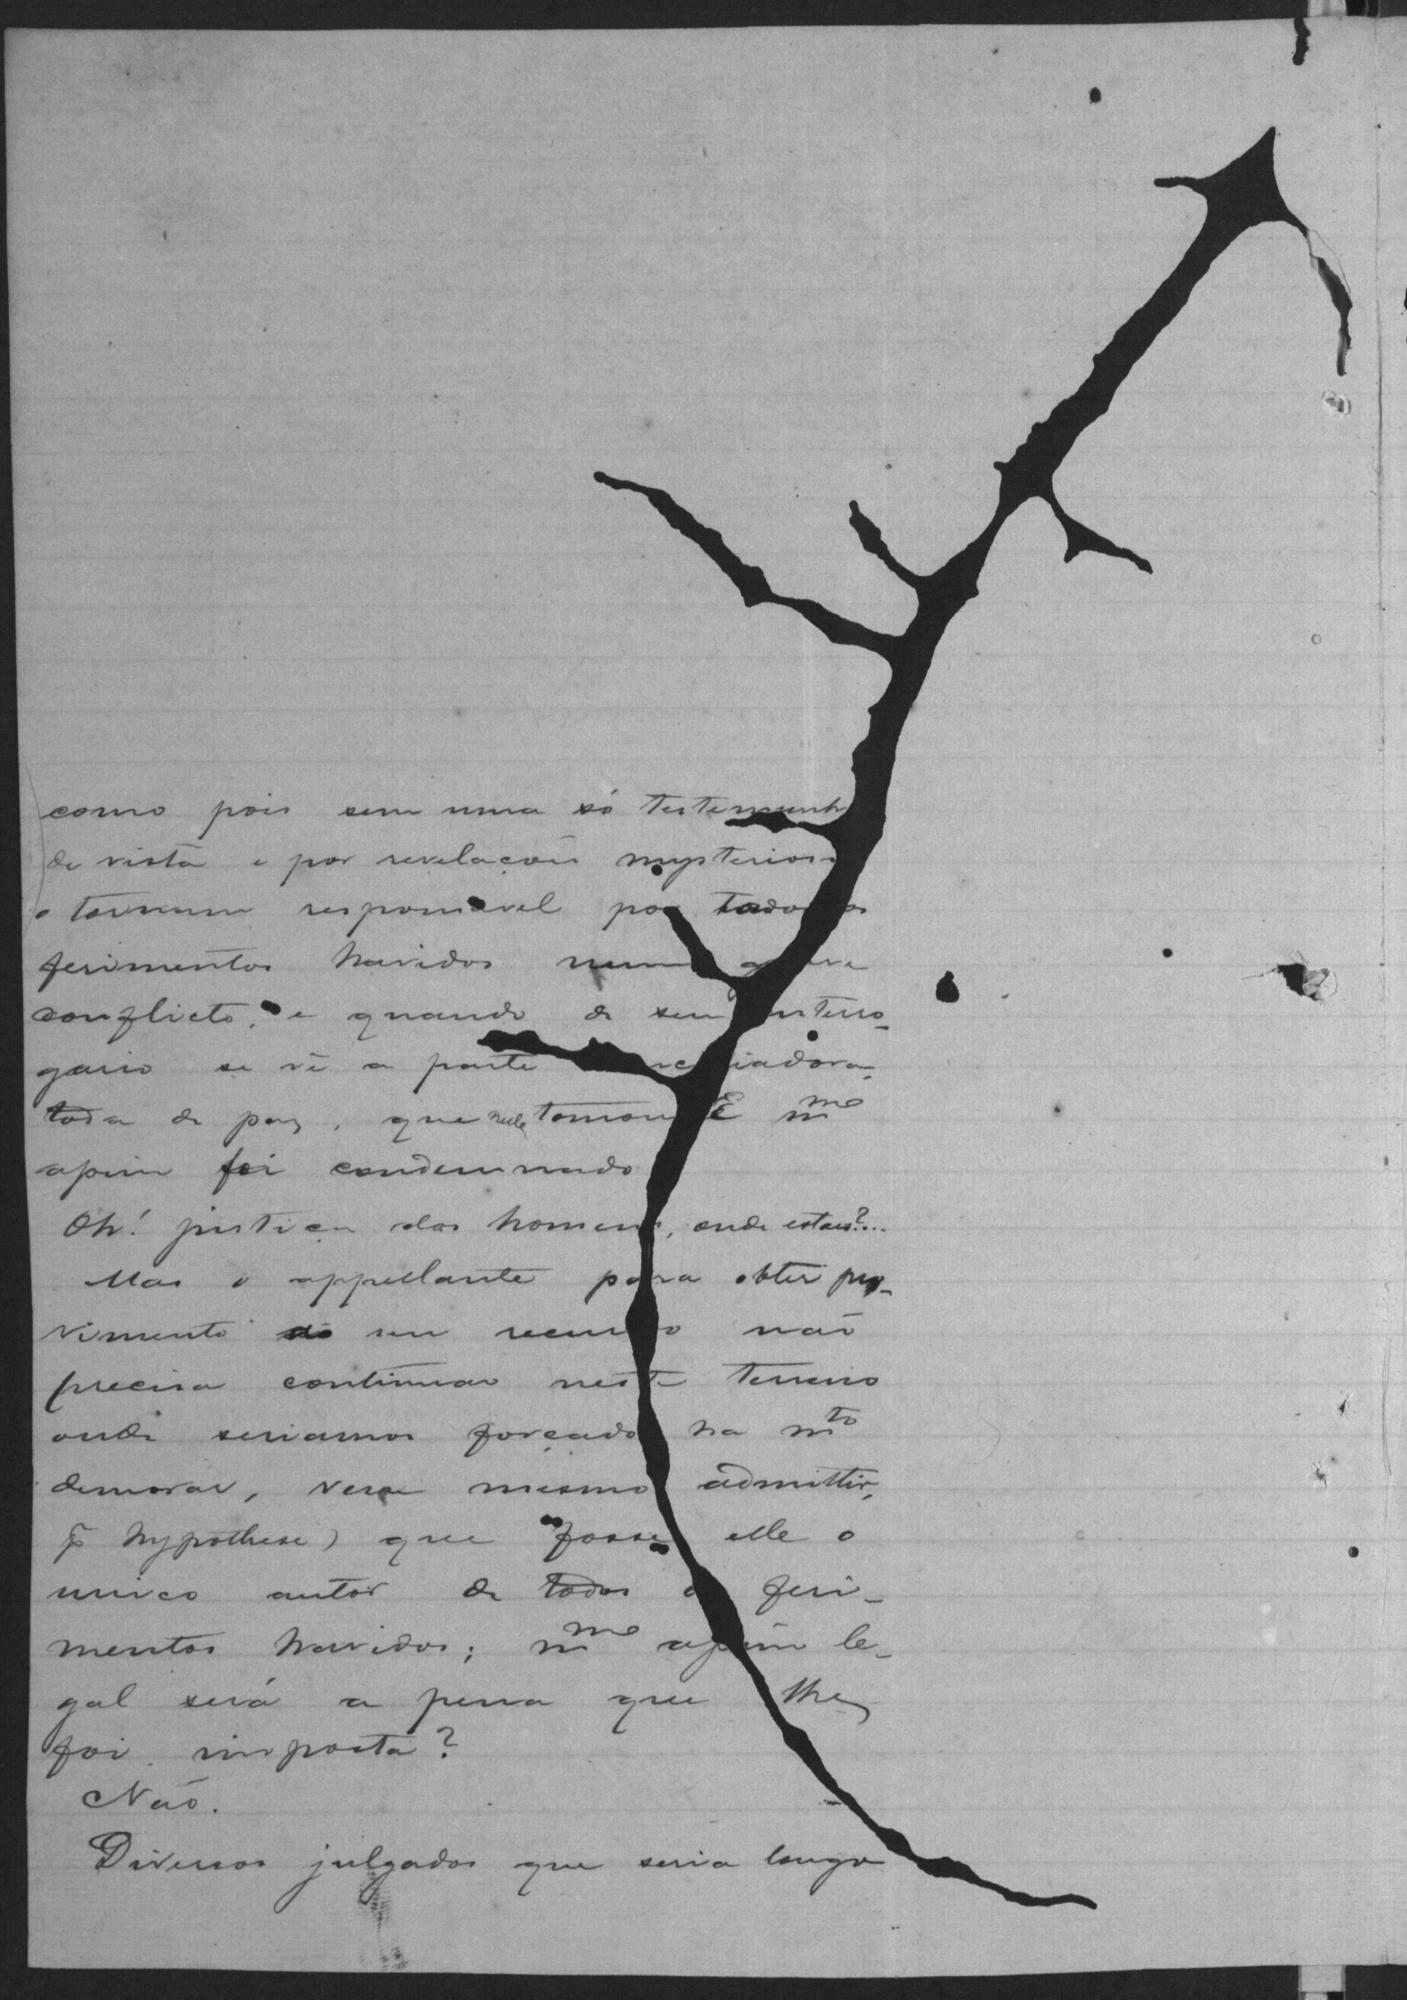 como pois sem uma só testemunh
de vista e por revelações mysterios
o tornam responsavel por todos os
ferimentos havidos num
conflicto, e quando de seu interro-
gario se vê a parte
toda de paz, que nelle tomou E mmo
assim foi condemnado
Oh! justiça dos homens, onde estaes?...
Mas o appellante para obter pro-
vimento do seu recurso não
precisa continuar neste terreno
onde seriamos forçado ha mto
demorar, mesmo admittir,
p hypothese) que fosse elle o
unico autor de todos o feri-
mentos havidos; mmo assim le-
gal será a pena que lhe
foi imposta?
Não.
Diversos julgados que seria longo